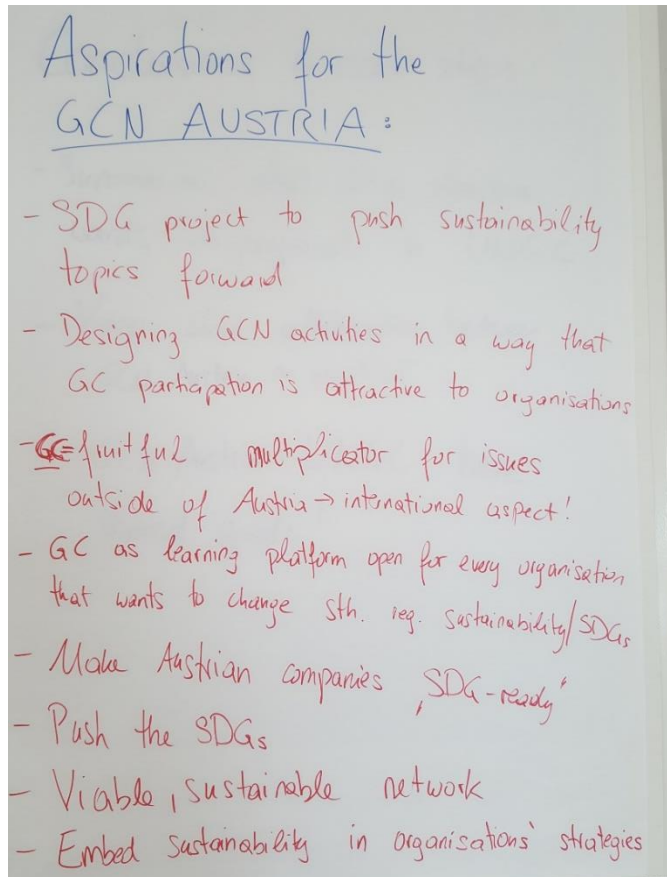 Aspirations for the
GCN AUSTRIA:
- SDG project to push sustainability
topics forward
- Designing GCN activities in a way that
GC participation is attractive to organisations
- GC= fruitful multiplicator for issues
outside of Austria → international aspect!
- GC as learning platform open for every organisation
that wants to change sth. reg. sustainability/SDGs
- Make Austrian companies ‚SDG-ready'
- Push the SDGs
- Viable, sustainable network
- Embed sustainability in organisations' strategies